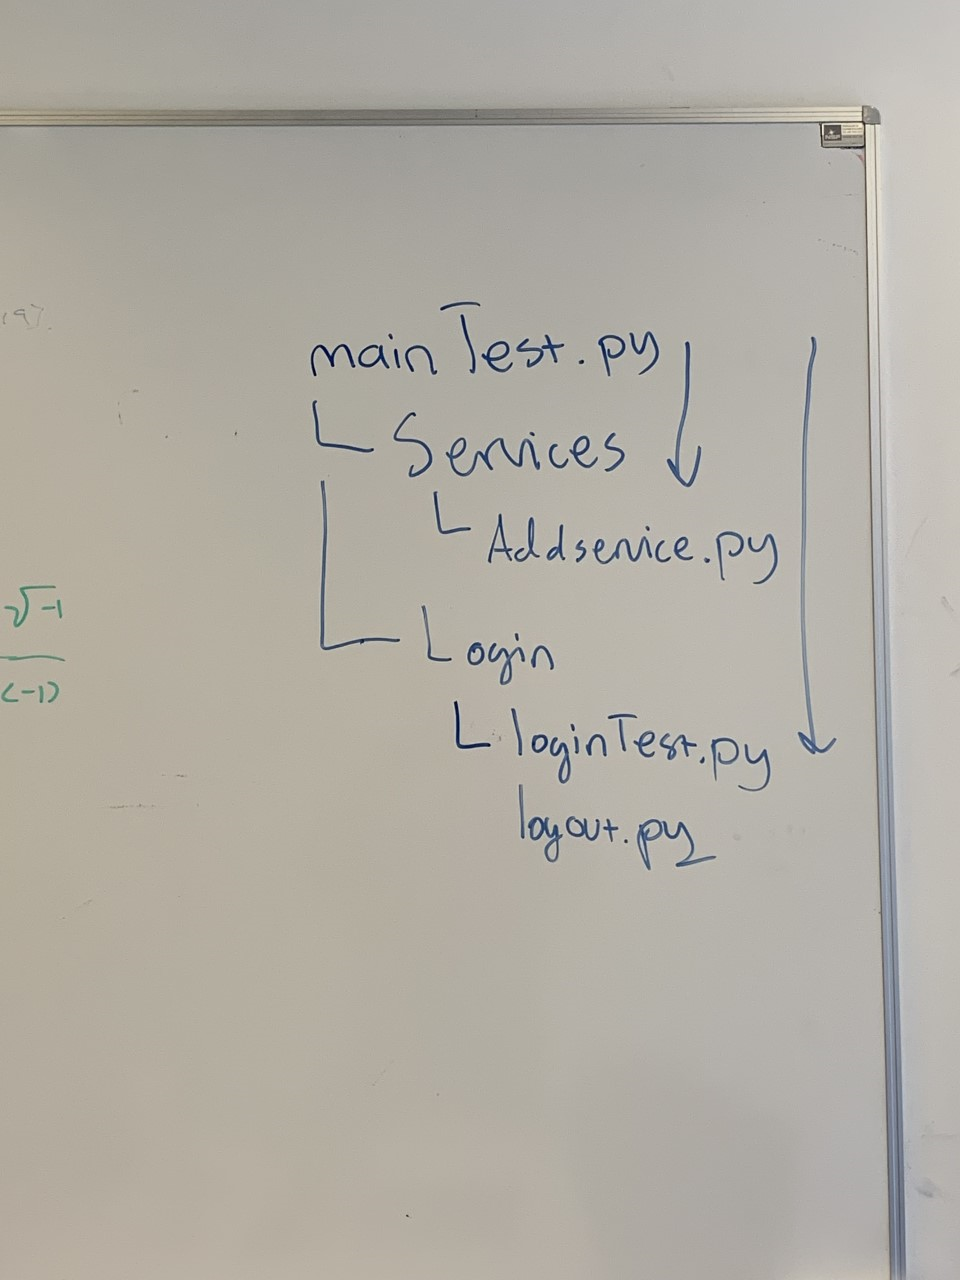 mainTest.py
Services
Addservice.py
Login
loginTest.py
logout.py
√-1
(-1)